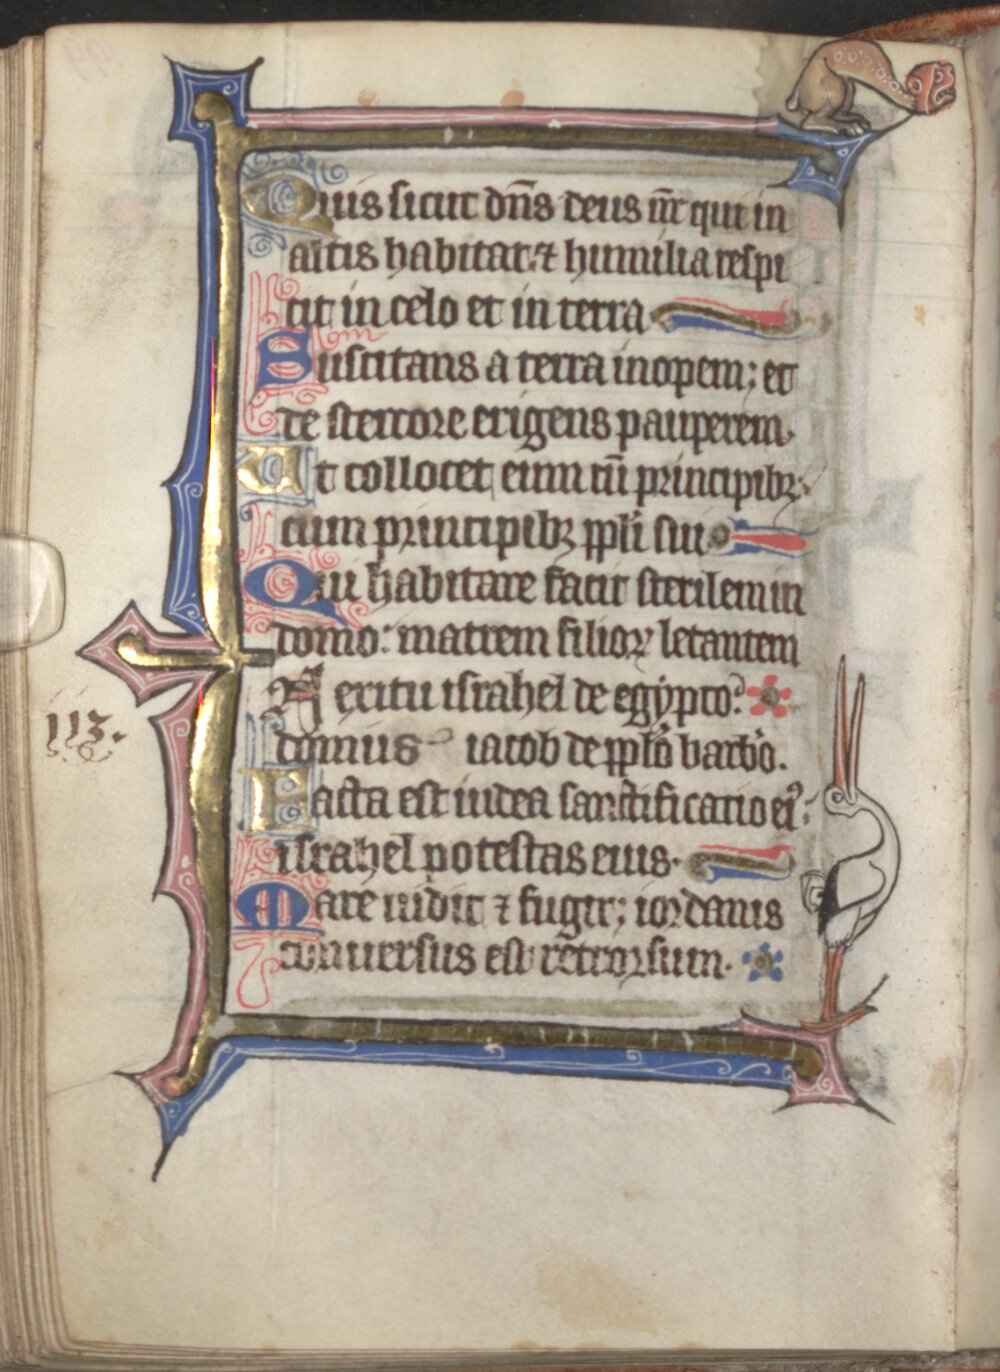 Quis sicut dn̄s deus nr̄ qui in
altis habitat: ⁊ humilia respi
cit in celo et in terra
Suscitans a terra inopem; et
de stercore erigens pauperem.
Ut collocet eum cū principibꝫ:
cum principibꝫ ppli sui.
Qui habitare facit sterilem in
domo: matrem filioꝝ letantem
In exitu israhel de egypto:
113.
domus iacob de pplo barbo.
Facta est iudea sanctificatio eiꝰ:
israhel potestas eius.
Mare uidit ⁊ fugit; iordanis
conuersus est retrorsum.